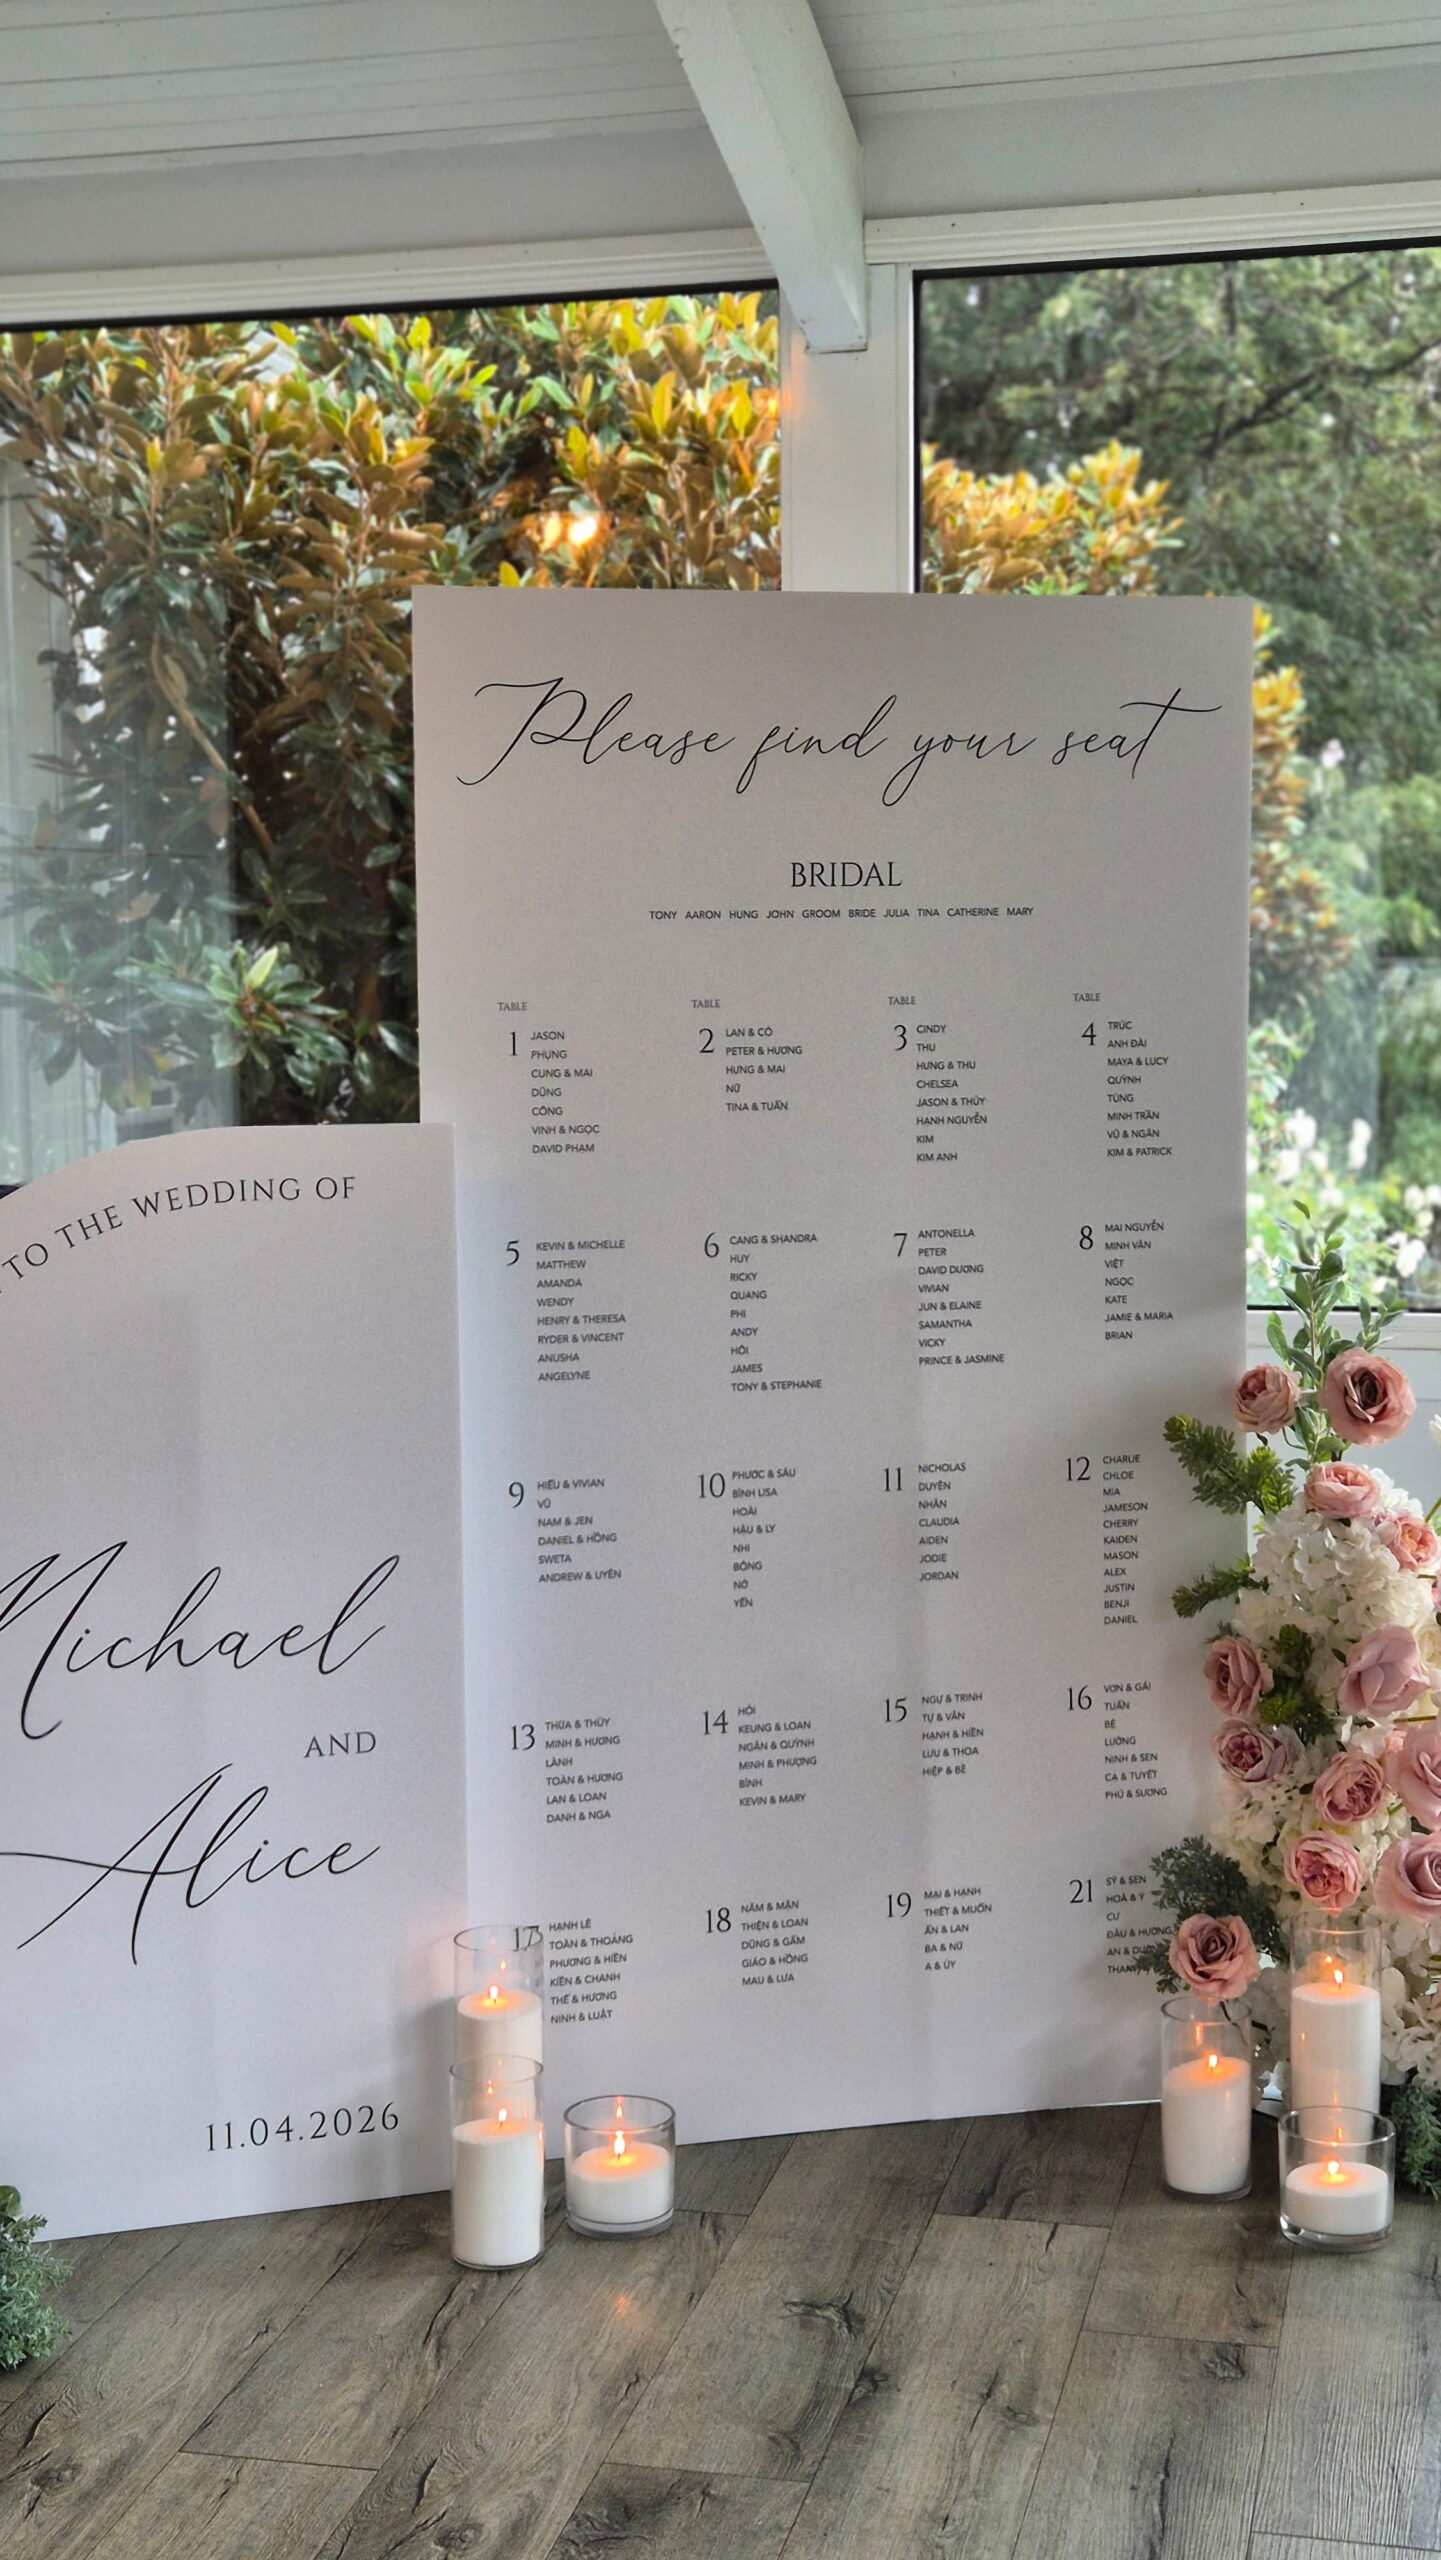 TO THE WEDDING OF
Michael
AND
Alice
11.04.2026
Please find your seat
BRIDAL
TONY AARON HUNG JOHN GROOM BRIDE JULIA TINA CATHERINE MARY
TABLE
1
JASON
PHỤNG
CUNG & MAI
DŨNG
CÔNG
VINH & NGỌC
DAVID PHẠM
TABLE
2
LAN & CÓ
PETER & HƯƠNG
HƯNG & MAI
NỮ
TINA & TUẤN
TABLE
3
CINDY
THU
HUNG & THU
CHELSEA
JASON & THỦY
HẠNH NGUYỄN
KIM
KIM ANH
TABLE
4
TRÚC
ANH ĐÀI
MAYA & LUCY
QUỲNH
TÙNG
MINH TRẦN
VŨ & NGÂN
KIM & PATRICK
5
KEVIN & MICHELLE
MATTHEW
AMANDA
WENDY
HENRY & THERESA
RYDER & VINCENT
ANUSHA
ANGELYNE
6
CANG & SHANDRA
HUY
RICKY
QUANG
PHI
ANDY
HỘI
JAMES
TONY & STEPHANIE
7
ANTONELLA
PETER
DAVID DƯƠNG
VIVIAN
JUN & ELAINE
SAMANTHA
VICKY
PRINCE & JASMINE
8
MAI NGUYỄN
MINH VĂN
VIỆT
NGỌC
KATE
JAMIE & MARIA
BRIAN
9
HIẾU & VIVIAN
VŨ
NAM & JEN
DANIEL & HỒNG
SWETA
ANDREW & UYÊN
10
PHƯỚC & SÁU
BÌNH LISA
HOÀI
HẬU & LY
NHI
BÔNG
NỞ
YẾN
11
NICHOLAS
DUYÊN
NHÂN
CLAUDIA
AIDEN
JODIE
JORDAN
12
CHARLIE
CHLOE
MIA
JAMESON
CHERRY
KAIDEN
MASON
ALEX
JUSTIN
BENJI
DANIEL
13
THỪA & THÙY
MINH & HƯƠNG
LÀNH
TOÀN & HƯƠNG
LAN & LOAN
DANH & NGA
14
HỘI
KEUNG & LOAN
NGÂN & QUỲNH
MINH & PHƯỢNG
BÌNH
KEVIN & MARY
15
NGỰ & TRINH
TỰ & VÂN
HẠNH & HIỀN
LƯU & THOA
HIỆP & BÊ
16
VƠN & GÁI
TUẤN
BÉ
LƯỠNG
NINH & SEN
CA & TUYẾT
PHÚ & SƯƠNG
17
HẠNH LÊ
TOÀN & THOẢNG
PHƯƠNG & HIỀN
KIÊN & CHANH
THẾ & HƯƠNG
NINH & LUẬT
18
NĂM & MẬN
THIỆN & LOAN
DŨNG & GẤM
GIÁO & HỒNG
MAU & LỤA
19
MAI & HẠNH
THIẾT & MUỐN
ẨN & LAN
BA & NỮ
A & ÚY
21
SỸ & SEN
HOÀ & Ý
CƯ
ĐẬU & HƯƠNG
AN &